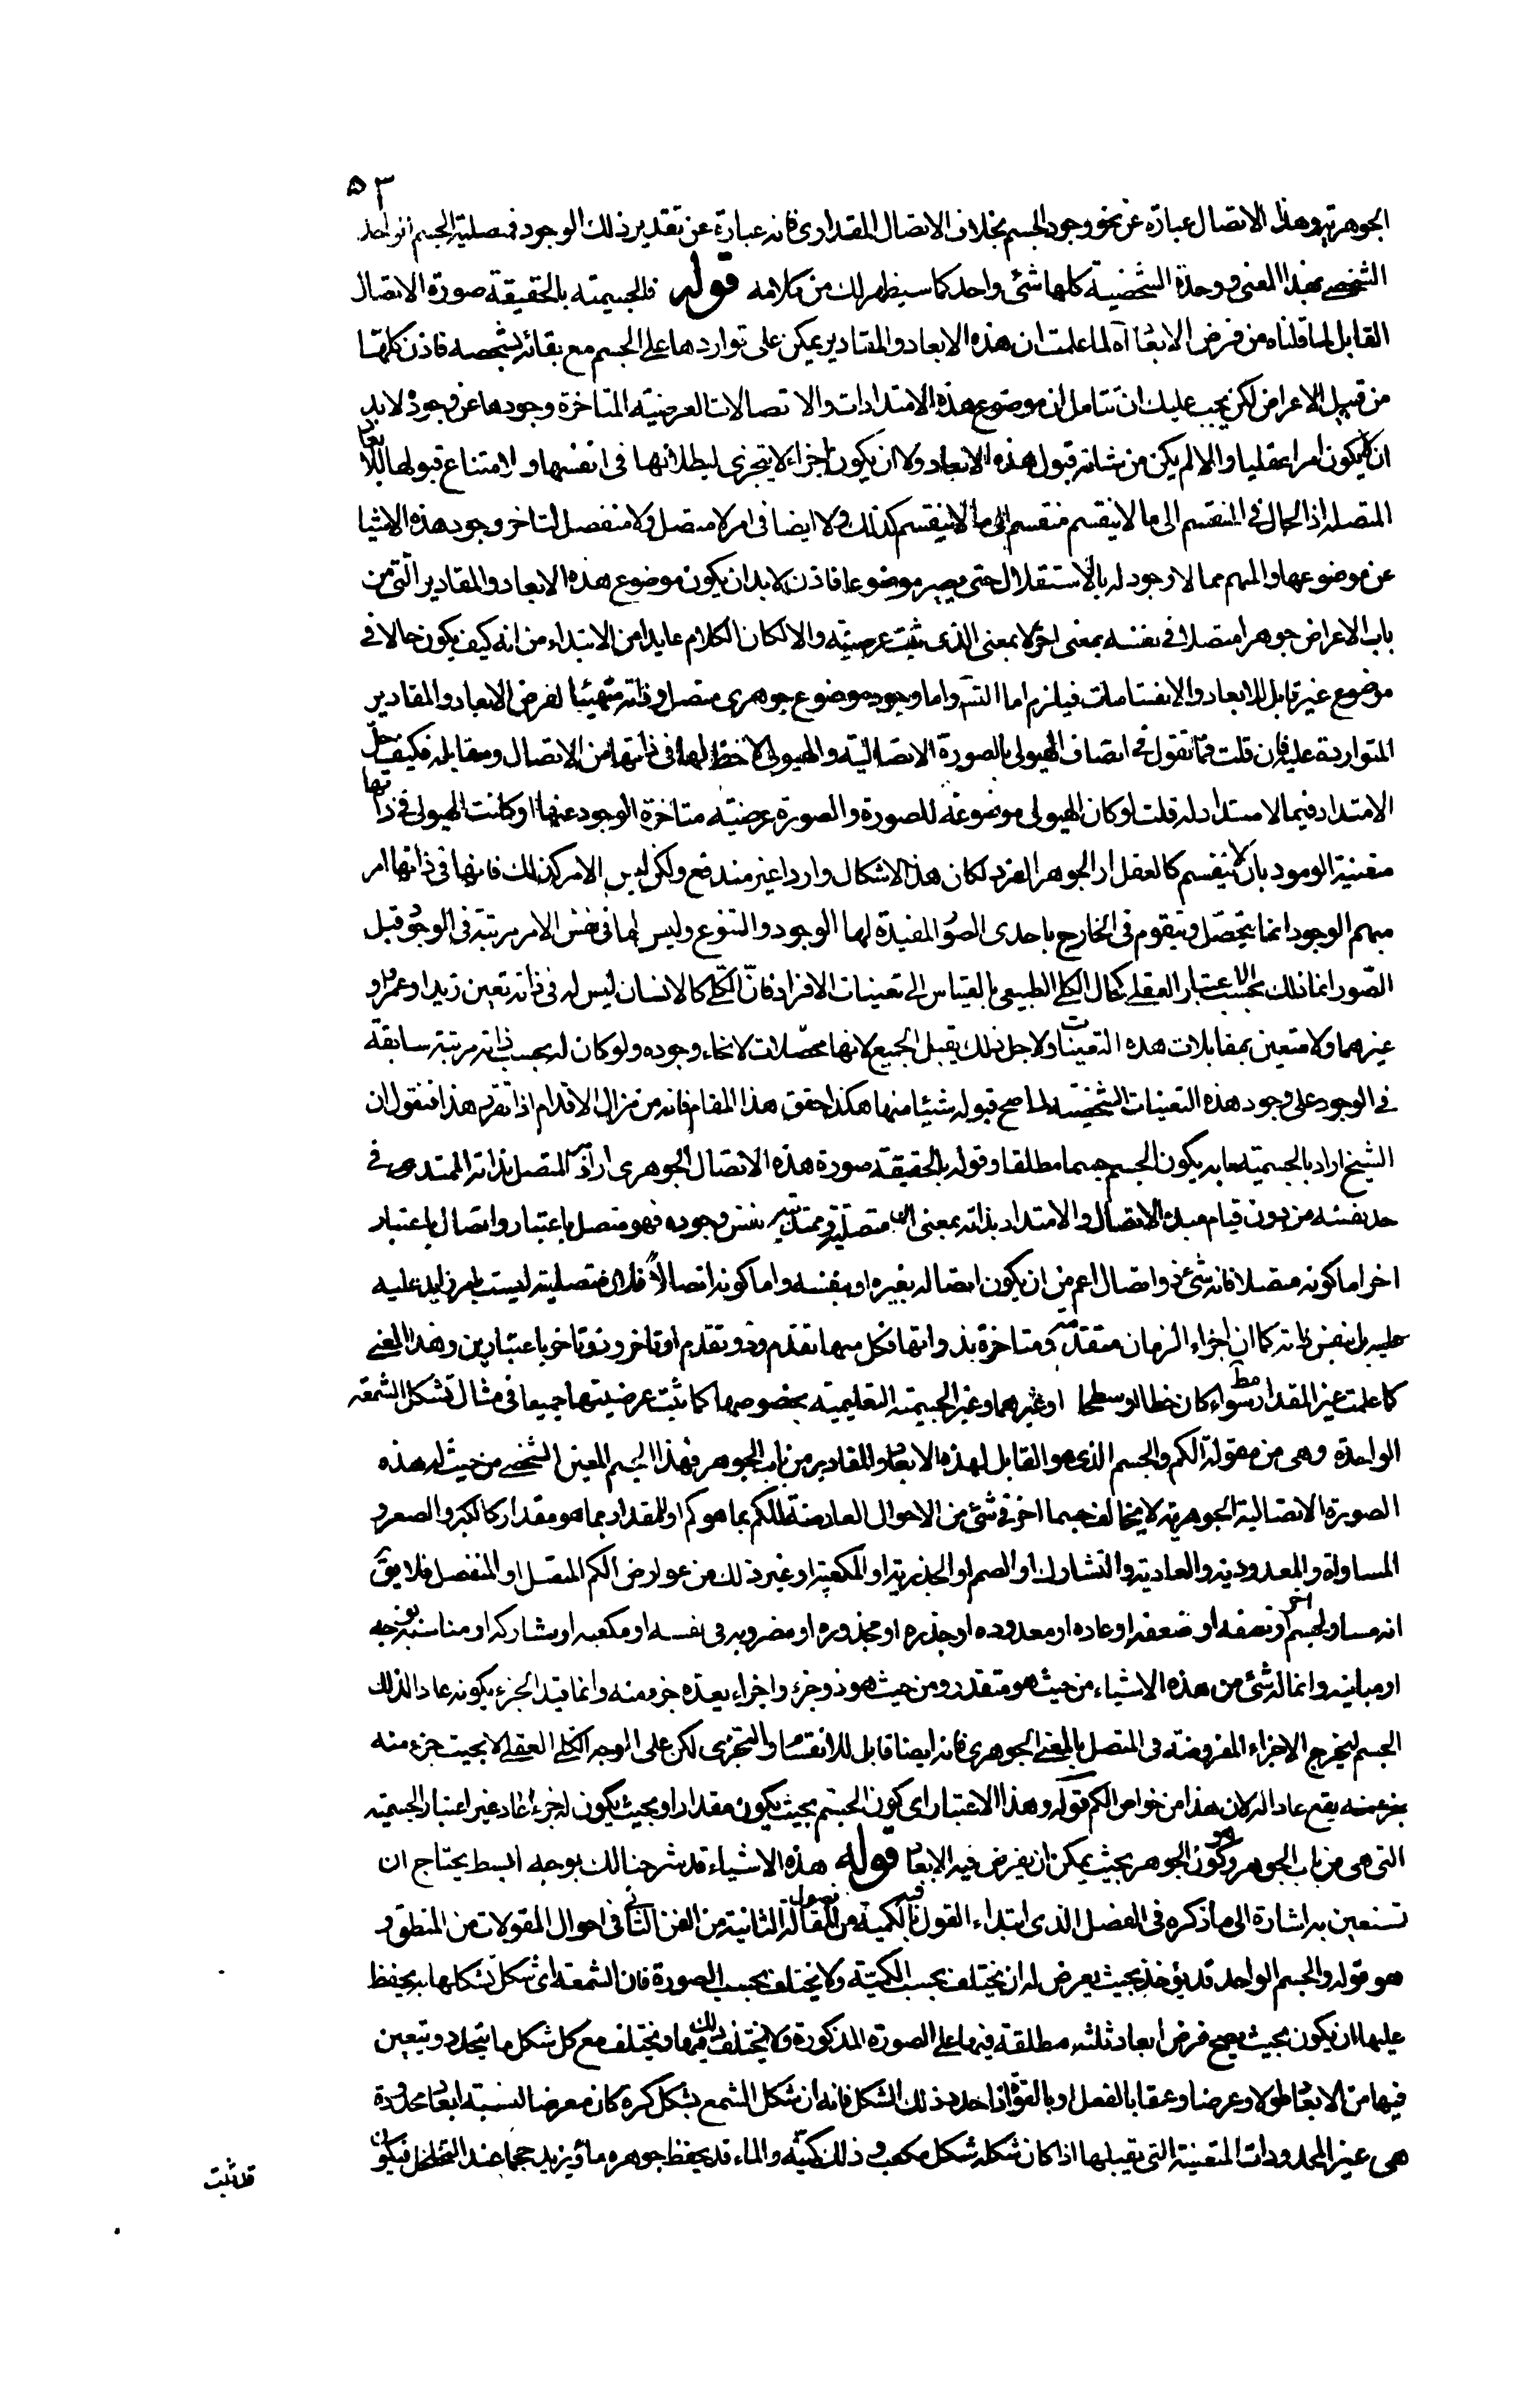 ٥٣
الجوهرية وهذا الاتصال عبارة عن نحو وجود الجسم بخلاف الاتصال المقدارى فانه عبارة عن تقدير ذلك الوجود فمتصلية الجسم الواحد
الشخصى بهذا المعنى ووحدة الشخصية كلها شئ واحد كما سيظهر لك من كلامه قوله فالجسمية بالحقيقة صورة الاتصال
القابل لما قلناه من فرض الابعاد آه لما علمت ان هذه الابعاد والمقادير يمكن على تواردها على الجسم مع بقائه بشخصه فاذن كلها
من قبيل الاعراض لكن يجب عليك ان تتامل ان موضوع هذه الامتدادات والاتصالات العرضية المتاخرة وجودها عن وجوده لابد
ان لايكون امرا عقليا والا لم يكن من شانه قبول هذه الابعاد ولا ان يكون اجزاء لايتجزى لبطلانها فى انفسها ولامتناع قبولها للابعاد
المتصله اذ الحال فى المنقسم الى ما لا ينقسم منقسم الى ما لا ينقسم كذلك ولا ايضا فى امر لا متصل ولا منفصل لتاخر وجود هذه الاشيا
عن موضوعها والمبهم مما لا وجود له بالاستقلال حتى يصير موضوعا فاذن لابد ان يكون موضوع هذه الابعاد والمقادير التى من
باب الاعراض جوهرا متصلا فى نفسه بمعنى اخر لا بمعنى الذى ثبت عرضيته والا لكان الكلام عايدا من الابتداء من انه كيف يكون حالا فى
موضوع غير قابل للابعاد والانقسامات فيلزم اما التسـ واما وجود موضوع جوهرى متصل فى ذاته متهيئا لفرض الابعاد والمقادير
المتواردة عليه فان قلت فما تقول فى اتصاف الهيولى بالصورة الاتصالية والهيولى لا حظ لها فى ذاتها من الاتصال ومقابله فكيف حل
الامتداد فيما لا امتداد له قلت لو كان الهيولى موضوعة للصورة والصورة عرضية متاخرة الوجود عنها او كانت الهيولى فى ذاتها
متعينة الوجود بان لا ينقسم كالعقل او الجوهر الفرد لكان هذا الاشكال واردا غير مندفع ولكن ليس الامر كذلك فانها فى ذاتها امر
مبهم الوجود انما يتحصل ويتقوم فى الخارج باحدى الصور المفيدة لها الوجود والتنوع وليس لها فى نفس الامر مرتبة فى الوجود قبل
الصور انما ذلك بحسب الاعتبار العقلى كحال الكلى الطبيعى بالقياس الى تعينات الافراد فان الكلى كالانسان ليس له فى ذاته تعين زيد او عمرو او
غيرهما ولا متعين بمقابلات هذه التعينات ولاجل ذلك يقبل الجميع لانها محصلات لانحاء وجوده ولو كان له بحسب ذاته مرتبة سابقة
فى الوجود على وجود هذه التعينات الشخصية لما صح قبوله شيئا منها هكذا حقق هذا المقام فانه من مزال الاقدام اذا تقرر هذا فنقول ان
الشيخ اراد بالجسمية ما به يكون الجسم جسما مطلقا وقوله بالحقيقة صورة هذه الاتصال الجوهرى اراد به المتصل بذاته الممتد فى
حد نفسه من دون قيام مبدء الاتصال والامتداد بذاته بمعنى ان متصليته وممتديته نفس وجوده فهو متصل باعتبار واتصال باعتبار
اخر اما كونه متصلا فانه شئ ذو اتصال اعم من ان يكون اتصاله بغيره او بنفسه واما كونه اتصالا فلان متصليته ليست بامر زايد عليه
عليه بل بنفس ذاته كما ان اجزاء الزمان متقدمة ومتاخرة بذواتها فكل منها تقدم وذو تقدم او تاخر وذو تاخر باعتبارين وهذا المعنى
كما علمت غير المقدار مط سواء كان خطا او سطحا او غيرهما وغير الجسمية التعليمية بخصوصها كما ثبت عرضيتها جميعا فى مثال تشكل الشمعة
الواحدة وهى من مقولة الكم والجسم الذى هو القابل لهذه الابعاد والمقادير من باب الجوهر فهذا الجسم المعين الشخصى من حيث له هذه
الصورة الاتصالية الجوهرية لا يخالف جسما اخر فى شئ من الاحوال العارضة للكم بما هو كم او للمقدار بما هو مقدار كالكبر والصغر و
المساواة والمعدودية والعادية والتشارك او الصم او الجذرية او المكعبية او غير ذلك من عوارض الكم المتصل او المنفصل فلا يق
انه مساو لجسم اخر او نصفه او ضعفه او عاده او معدوده او جذره او مجذوره او مضروبه فى نفسه او مكعبه او مشاركه او مناسبه بوجه
او مباينه وانما له شئ من هذه الاشياء من حيث هو متقدر ومن حيث هو ذو جزء واجزاء يعده جزء منه وانما قيد الجزء بكونه عادا لذلك
الجسم ليخرج الاجزاء المفروضة فى المتصل بالمعنى الجوهرى فانه ايضا قابل للانقسام والتجزى لكن على الوجه الكلى العقلى لا بحيث جزء منه
بجزء منه يقع عادا له لان هذا من خواص الكم قوله وهذا الاعتبار اى كون الجسم بحيث يكون مقدارا وبحيث يكون له جزء عاد غير اعتبار الجسمية
التى هى من باب الجوهر وهو كون الجوهر بحيث يمكن ان يفرض فيه الابعاد قوله هذه الاشياء قد شرحنا لك بوجه ابسط يحتاج ان
تستعين به اشارة الى ما ذكره فى الفصل الذى ابتداء القول فيه بالكمية من فصول المقالة الثانية من الفن الثانى فى احوال المقولات من المنطق و
هو قوله والجسم الواحد قد يؤخذ بحيث يعرض له ان يختلف بحسب الكمية ولا يختلف بحسب الصورة فان الشمعة اى شكل تشكلها به يحفظ
عليها ان يكون بحيث يصح فرض ابعاد ثلثه مطلقة فيها على الصورة المذكورة ولا يختلف ذلك فيها ويختلف مع كل شكل ما يتحدد ويتعين
فيها من الابعاد طولا وعرضا وعمقا بالفعل او بالقوة اذا حدد ذلك الشكل فانه ان شكل الشمع بشكل كرة كان معرضا لنسبة ابعاد محدودة
هى غير المحدودات المتعينة التى يقبلها اذا كان شكله شكل مكعب و ذلك كميته والماء قد يحفظ جوهره ماء ويزيد حجما عند التخلخل فيكون
قد ثبت